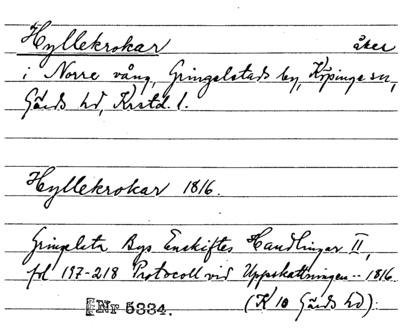 Hyllekrokar åker
i Norre vång, Gringelstads by, Köpinge sn,
Gärds hd, Krstd. l.
Hyllekrokar 1816.
Gringelsta Bys Enskiftes Handlingar II,
fol 197-218 Protocoll vid Uppskattningen -- 1816.
(K 10 Gärds hd).
Nr 5334.